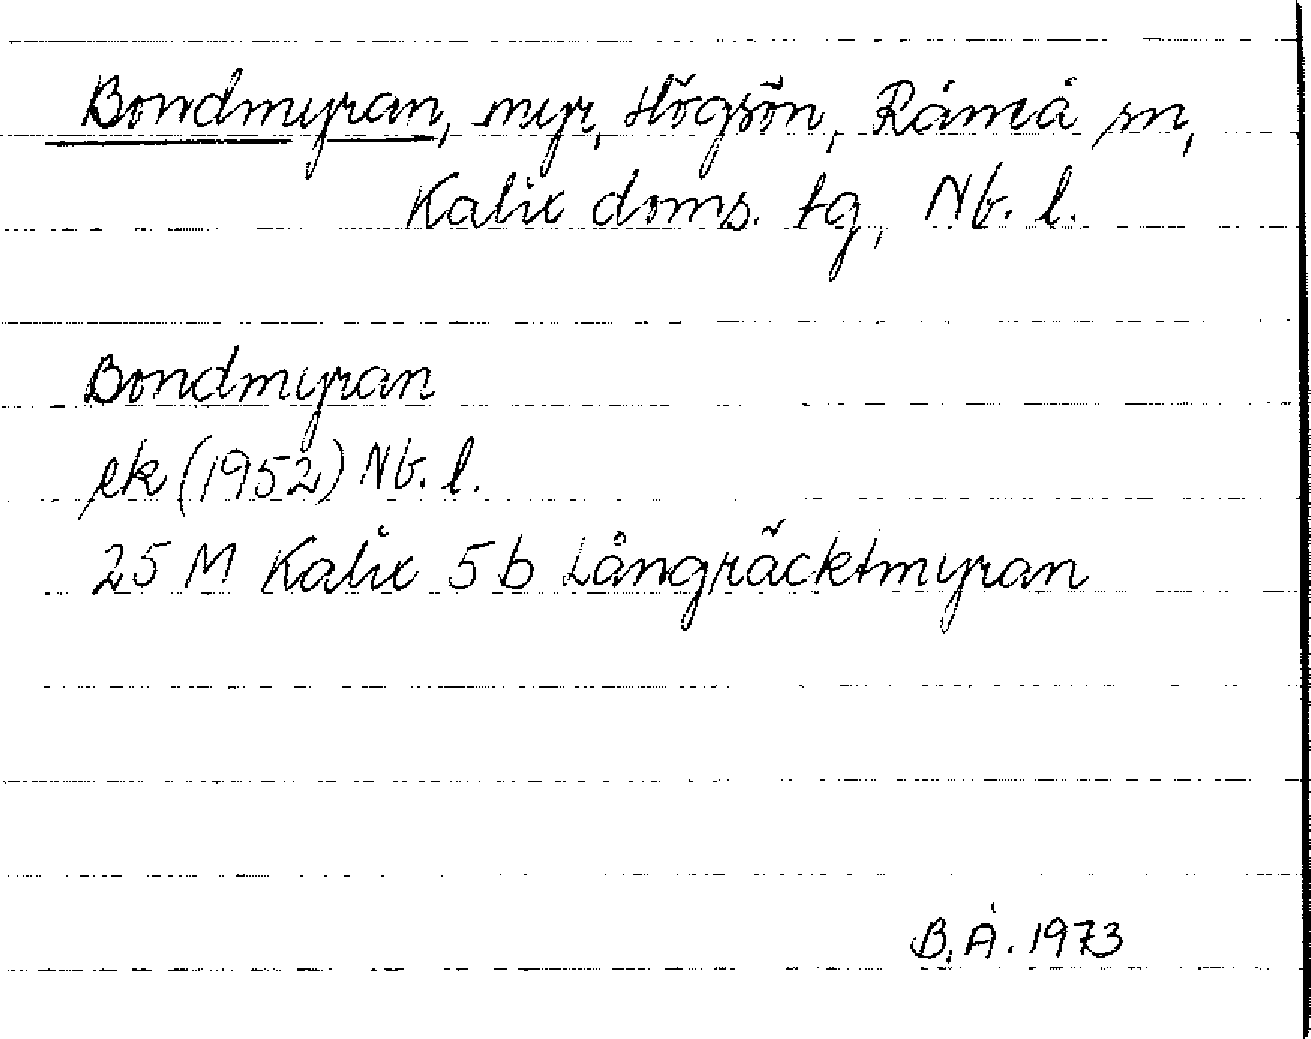 Bondmyran, myr, Högsön, Råneå sn,
Kalix doms. tg, Nb. l.
Bondmyran
ek (1952) Nb. l.
25 M Kalix 5 b Långräcktmyran
B. Å. 1973